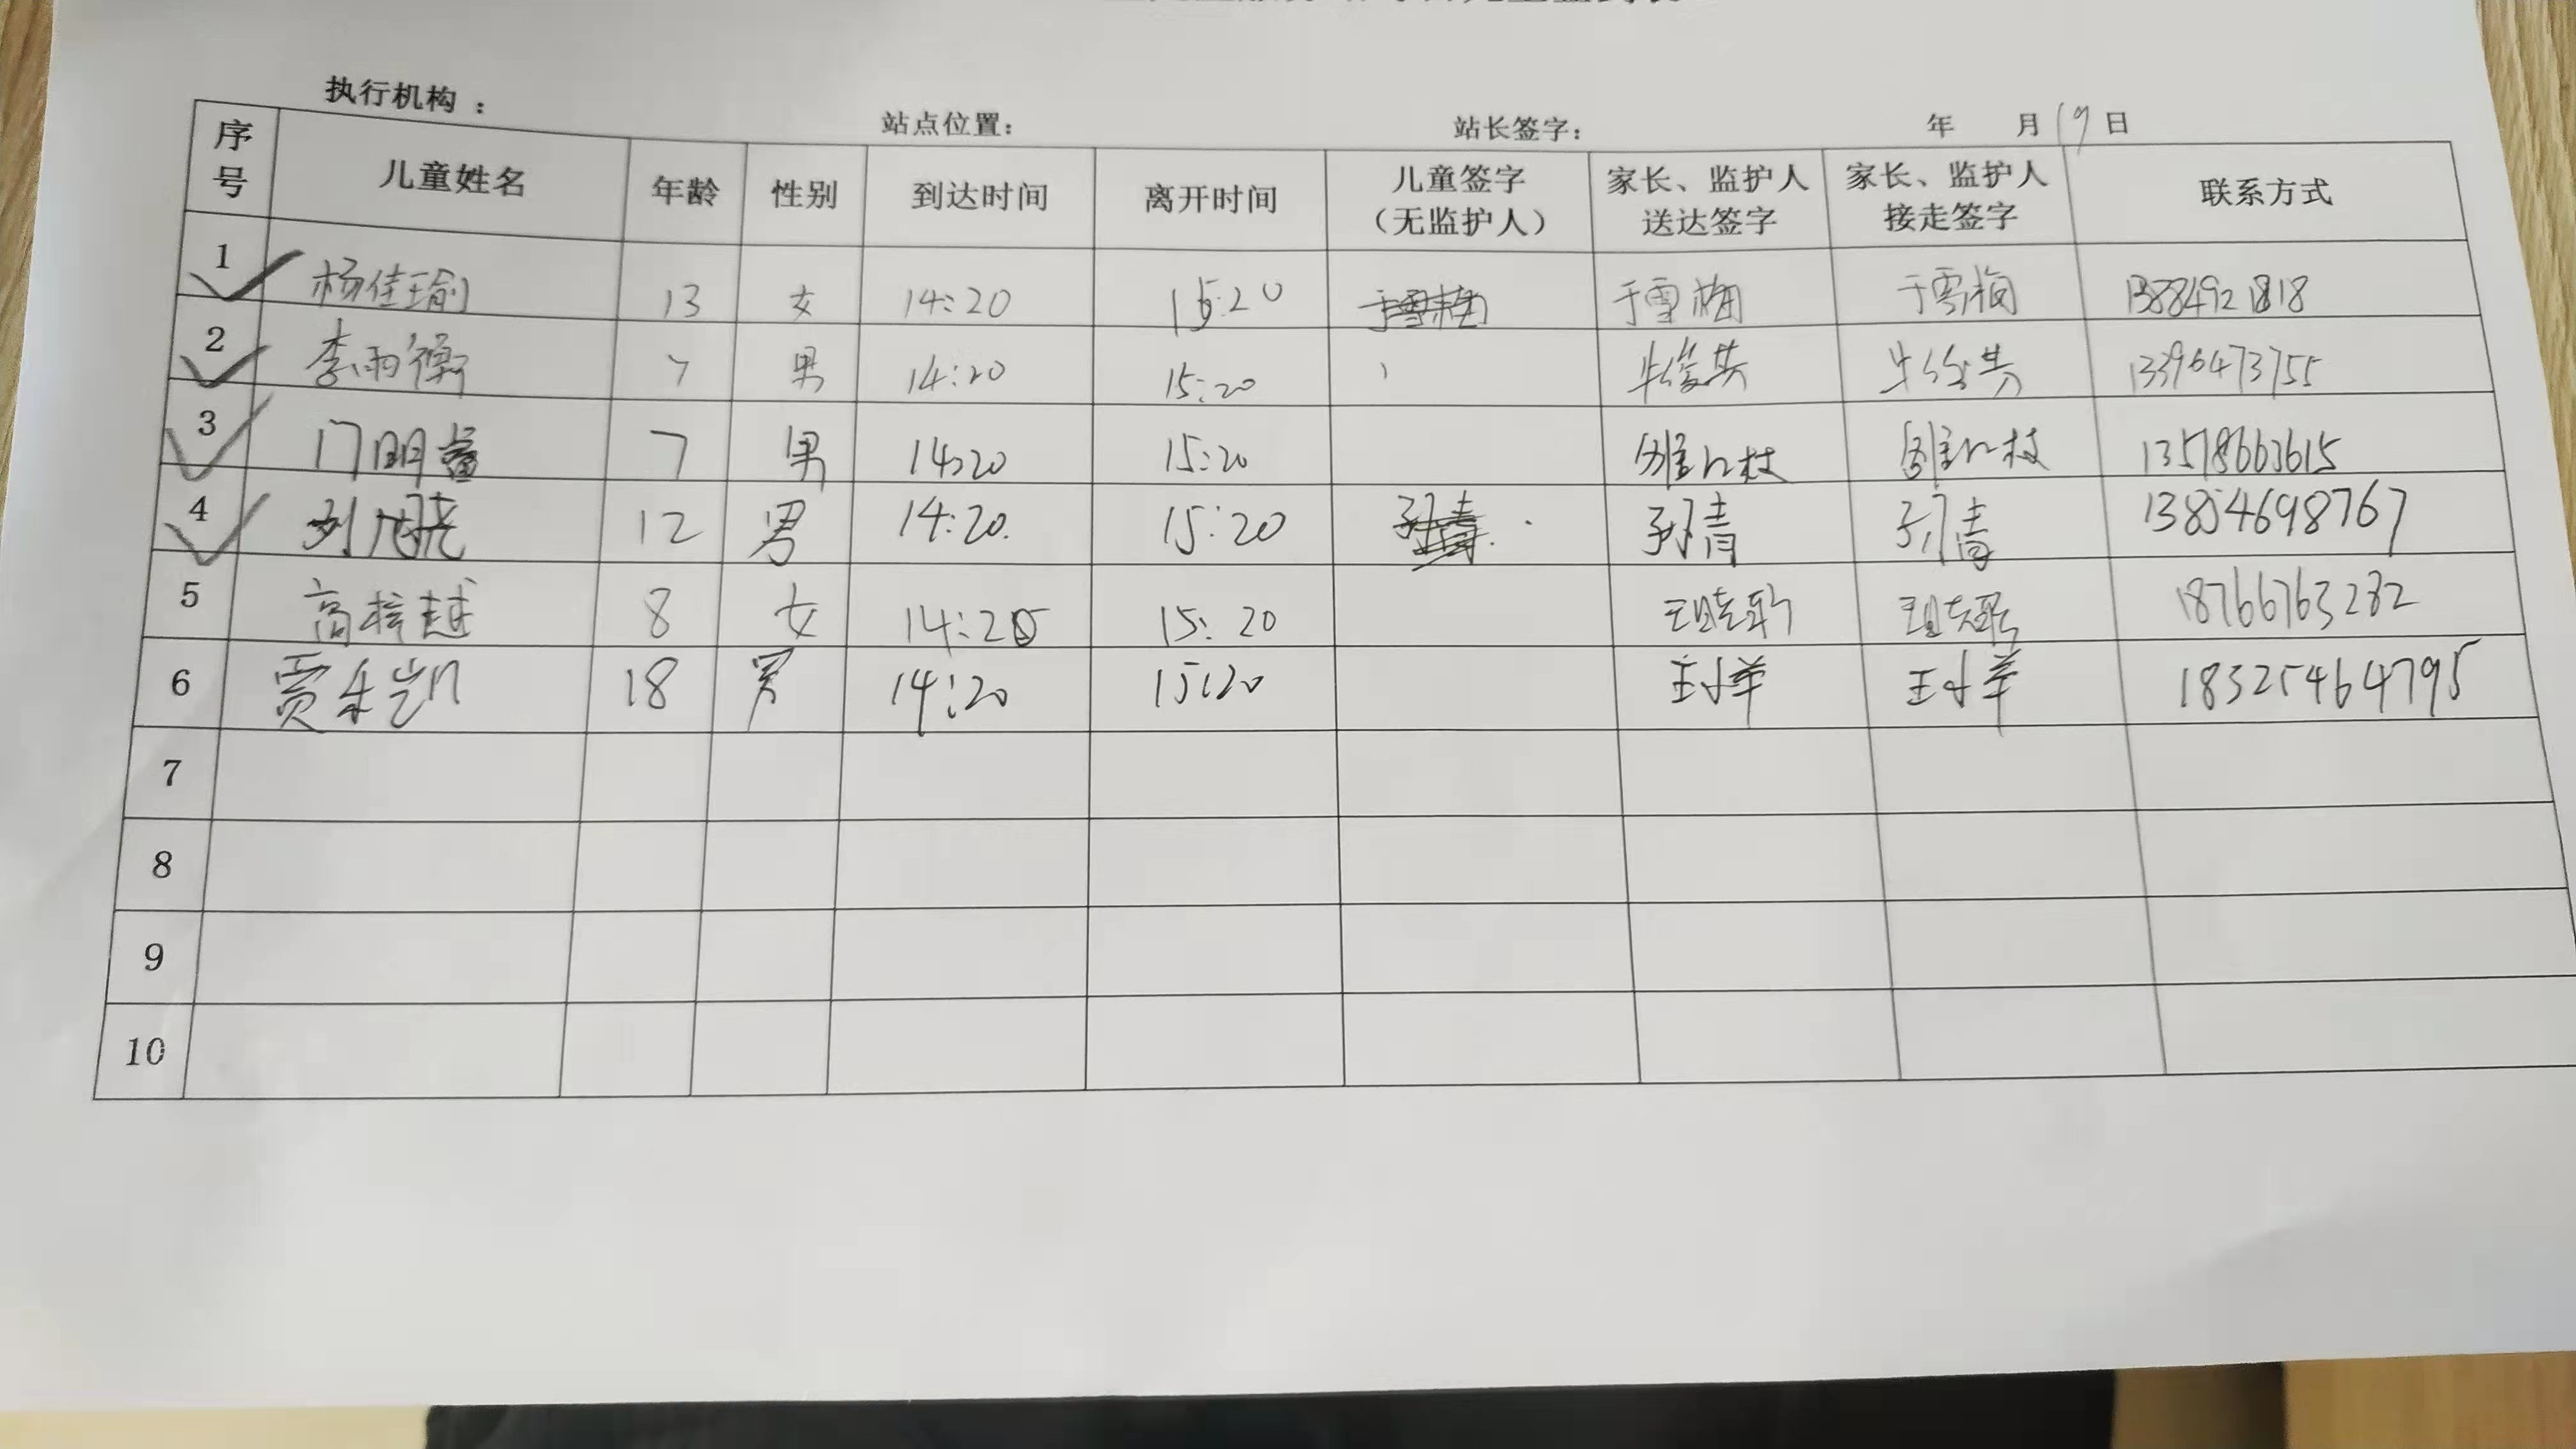 执行机构：
站点位置： 站长签字： 年 月19日
序号 儿童姓名 年龄 性别 到达时间 离开时间 儿童签字（无监护人） 家长、监护人送达签字 家长、监护人接走签字 联系方式
1 杨佳瑜 13 女 14:20 15:20 于雪梅 于雪梅 13884921818
2 李雨衡 7 男 14:20 15:20 牛俊英 13396473755
3 门明睿 7 男 14:20 15:20 13518663615
4 12 男 14:20. 15:20 孙青 孙青 13854698767
5 高梓越 8 女 14:20 15:20 18766763282
6 贾禾凯 18 男 14:20 15:20 王小苹 王小苹 18325464795
7
8
9
10